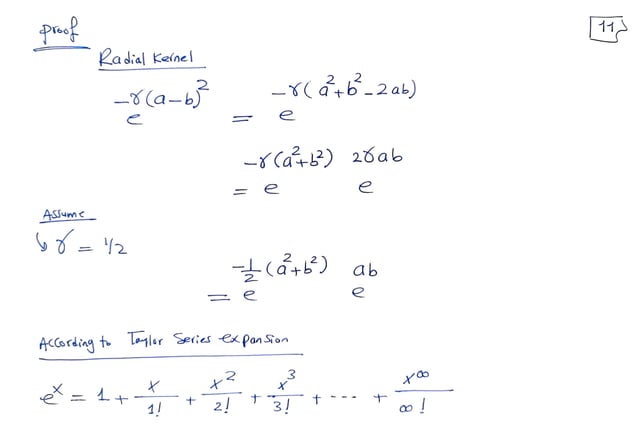 Proof
11
Radial Kernel
e^{-γ(a-b)^2} = e^{-γ(a^2+b^2-2ab)}
= e^{-γ(a^2+b^2)} e^{2γab}
Assume
↳ γ = 1/2
= e^{-1/2(a^2+b^2)} e^{ab}
According to Taylor Series expansion
e^x = 1 + x/1! + x^2/2! + x^3/3! + --- + x^∞/∞!